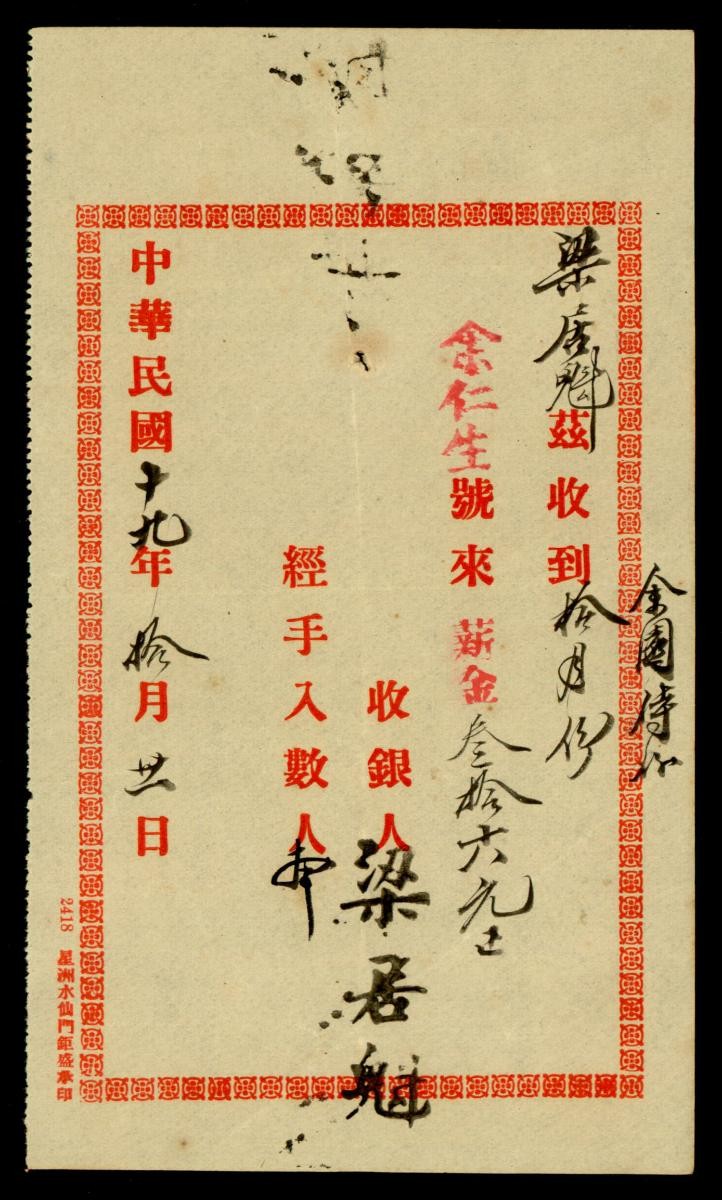 梁居魁茲收到拾月份
余仁生號來薪金叁拾六元正
收銀人梁居魁
經手入數人
中華民國十九年拾月卅日
2418 星洲水仙門鉅盛承印